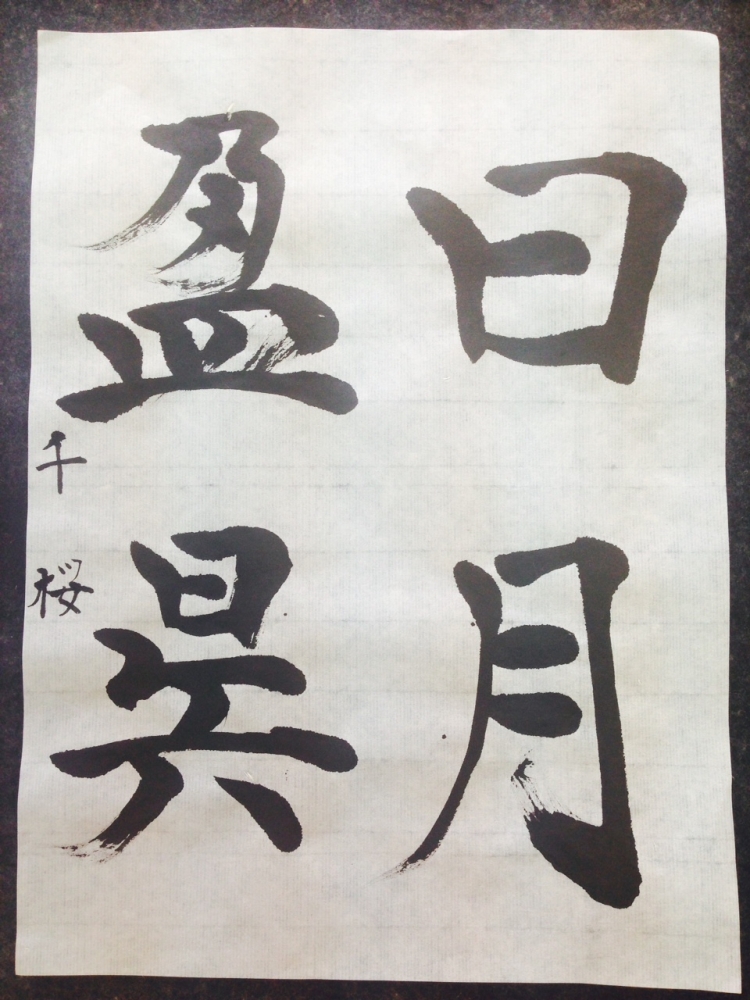 日月
盈昗
千桜